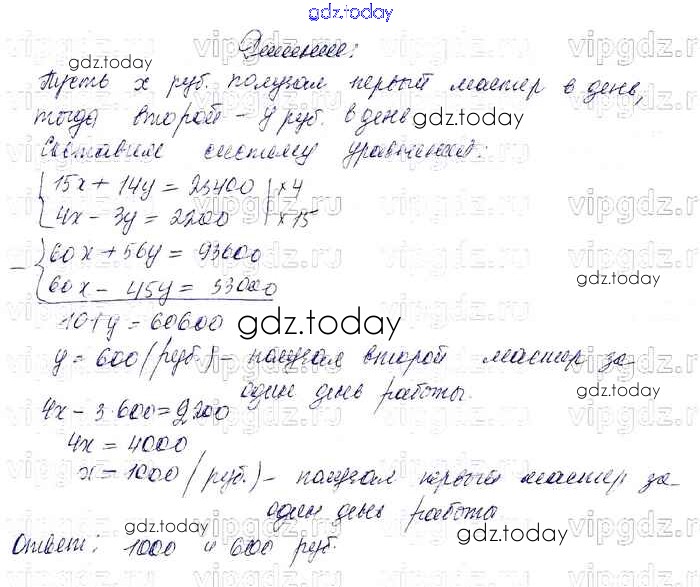 gdz.today
Решение:
gdz.today
Пусть x руб. получал первый мастер в день,
тогда второй – y руб. в день
gdz.today
Составим систему уравнений:
15x + 14y = 23400 | × 4
4x – 3y = 2200 | × 15
60x + 56y = 93600
– 60x – 45y = 33000
gdz.today
101y = 60600
gdz.today
y = 600 (руб.) – получал второй мастер за
один день работы.
4x – 3·600 = 2200
4x = 4000
x = 1000 (руб.) – получал первый мастер за
один день работы
gdz.today
gdz.today
Ответ: 1000 и 600 руб.
vipgdz.ru